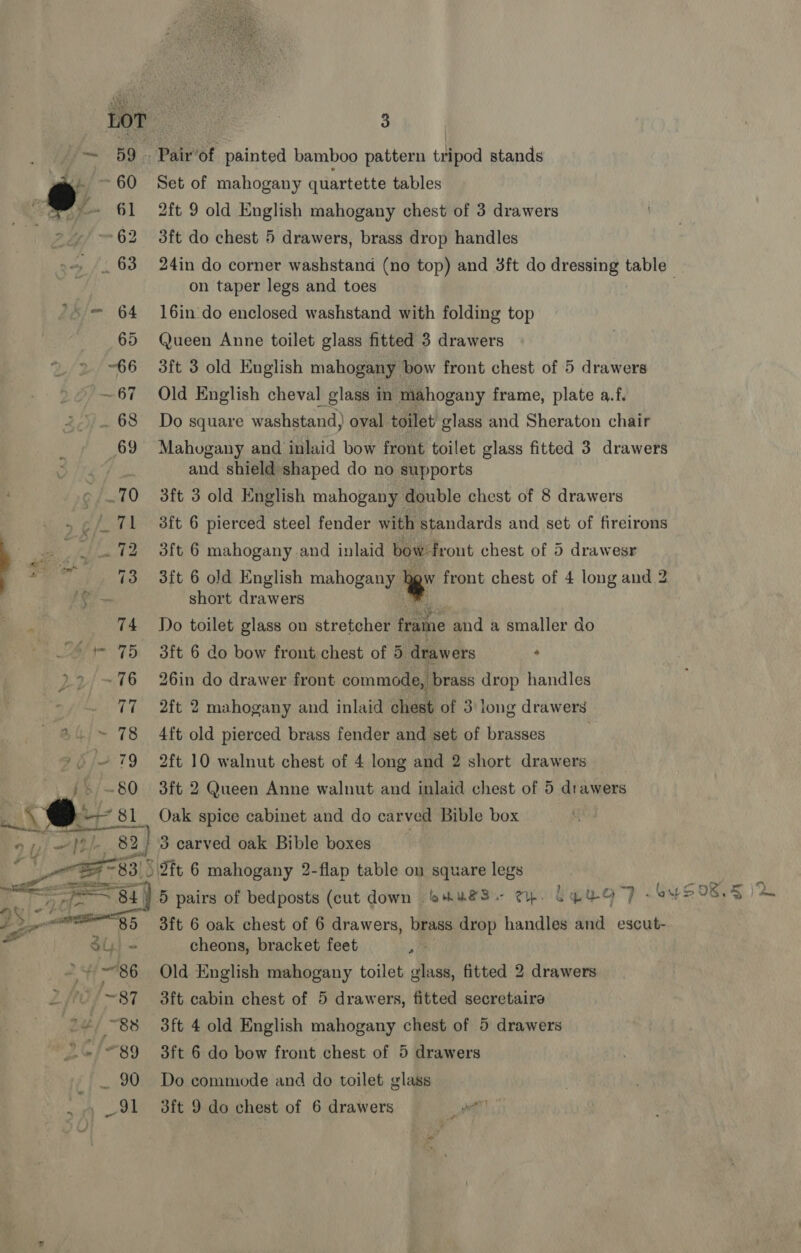 LOT 3
59 Pair of painted bamboo pattern tripod stands
60 Set of mahogany quartette tables
61 2ft 9 old English mahogany chest of 3 drawers
62 3ft do chest 5 drawers, brass drop handles
63 24in do corner washstand (no top) and 3ft do dressing table
on taper legs and toes
64 16in do enclosed washstand with folding top
65 Queen Anne toilet glass fitted 3 drawers
66 3ft 3 old English mahogany bow front chest of 5 drawers
67 Old English cheval glass in mahogany frame, plate a.f.
68 Do square washstand, oval toilet glass and Sheraton chair
69 Mahogany and inlaid bow front toilet glass fitted 3 drawers
and shield shaped do no supports
70 3ft 3 old English mahogany double chest of 8 drawers
71 3ft 6 pierced steel fender with standards and set of fireirons
72 3ft 6 mahogany and inlaid bow-front chest of 5 drawesr
73 3ft 6 old English mahogany bow front chest of 4 long and 2
short drawers
74 Do toilet glass on stretcher frame and a smaller do
75 3ft 6 do bow front chest of 5 drawers
76 26in do drawer front commode, brass drop handles
77 2ft 2 mahogany and inlaid chest of 3 long drawers
78 4ft old pierced brass fender and set of brasses
79 2ft 10 walnut chest of 4 long and 2 short drawers
80 3ft 2 Queen Anne walnut and inlaid chest of 5 drawers
81 Oak spice cabinet and do carved Bible box
82 3 carved oak Bible boxes
83 2ft 6 mahogany 2-flap table on square legs
84 5 pairs of bedposts (cut down
85 3ft 6 oak chest of 6 drawers, brass drop handles and escut-
cheons, bracket feet
86 Old English mahogany toilet glass, fitted 2 drawers
87 3ft cabin chest of 5 drawers, fitted secretaire
88 3ft 4 old English mahogany chest of 5 drawers
89 3ft 6 do bow front chest of 5 drawers
90 Do commode and do toilet glass
91 3ft 9 do chest of 6 drawers